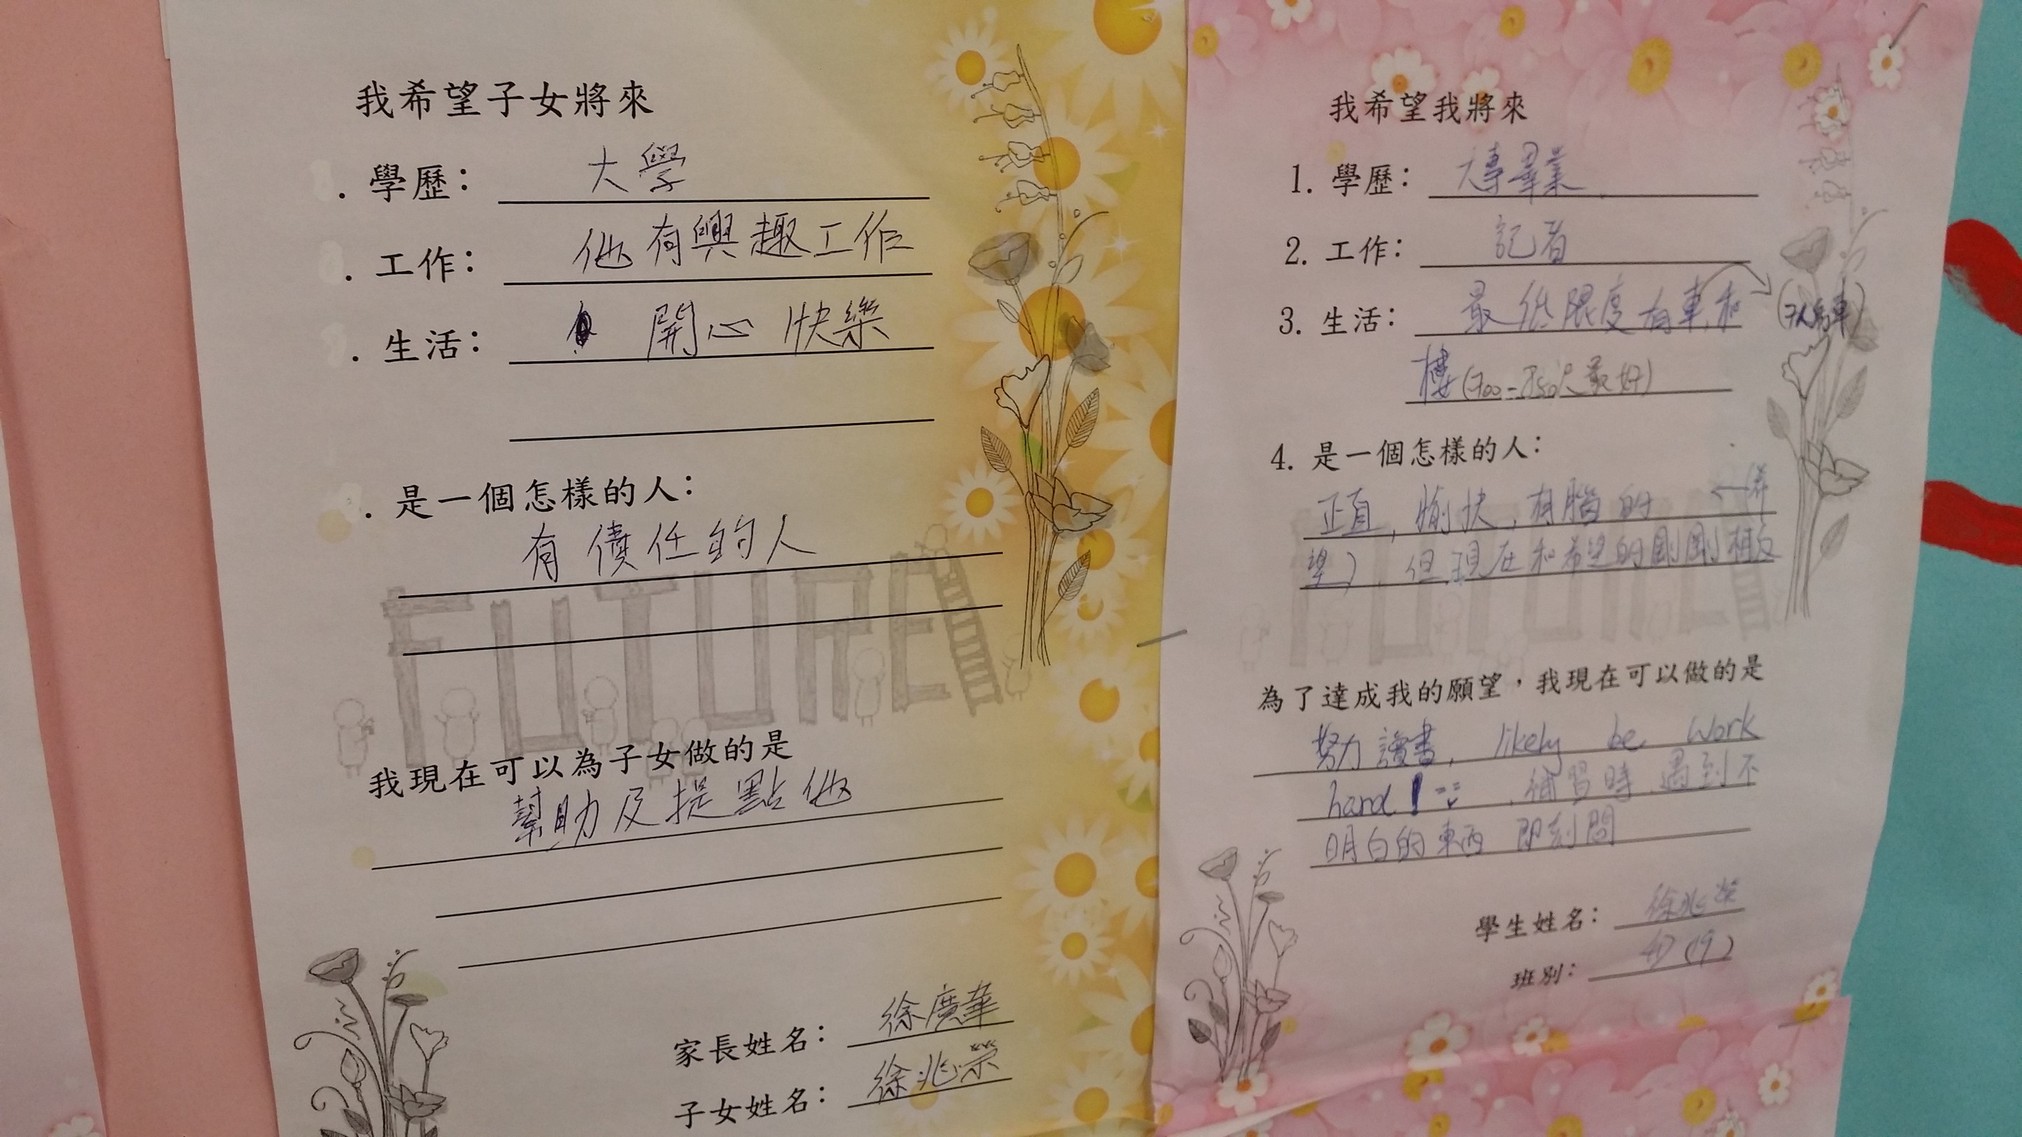 我希望子女將來
. 學歷： 大學
. 工作： 他有興趣工作
. 生活： 開心 快樂
. 是一個怎樣的人：
有債任的人
FUTURE
我現在可以為子女做的是
幫助及提點他
家長姓名： 徐廣華
子女姓名： 徐兆榮
我希望我將來
1. 學歷： 大專畢業
2. 工作： 記者
3. 生活： 最低限度有車和
(7人車)
樓(700-750尺最好)
4. 是一個怎樣的人：
正直，愉快，有腦的
望)，但現在和希望的剛剛相反
FUTURE
為了達成我的願望，我現在可以做的是
努力讀書，likely be work
hard! ，補習時遇到不
明白的東西 即刻問
學生姓名： 徐兆榮
班別： 4D(9)